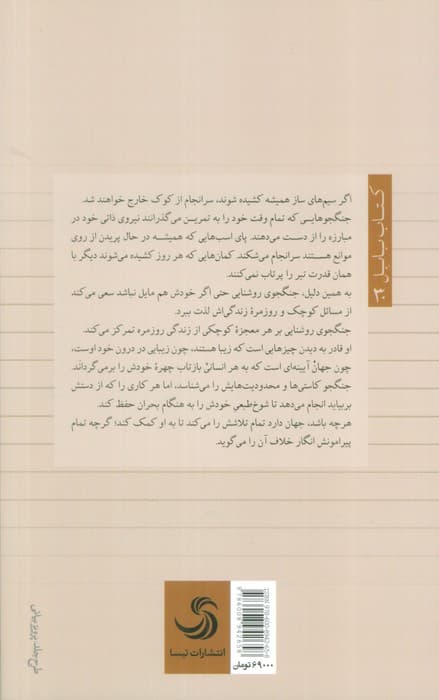 اگر سیم‌های ساز همیشه کشیده شوند، سرانجام از کوک خارج خواهند شد.
جنگجوهایی که تمام وقت خود را به تمرین می‌گذرانند نیروی ذاتی خود در
مبارزه را از دست می‌دهند. پای اسب‌هایی که همیشه در حال پریدن از روی
موانع هستند سرانجام می‌شکند. کمان‌هایی که هر روز کشیده می‌شوند دیگر با
همان قدرت تیر را پرتاب نمی‌کنند.
به همین دلیل، جنگجوی روشنایی حتی اگر خودش هم مایل نباشد سعی می‌کند
از مسائل کوچک و روزمرهٔ زندگی‌اش لذت ببرد.
جنگجوی روشنایی بر هر معجزهٔ کوچکی از زندگی روزمره تمرکز می‌کند.
او قادر به دیدن چیزهایی است که زیبا هستند، چون زیبایی در درون خود اوست،
چون جهان آیینه‌ای است که به هر انسانی بازتاب چهرهٔ خودش را برمی‌گرداند.
جنگجو کاستی‌ها و محدودیت‌هایش را می‌شناسد، اما هر کاری را که از دستش
بربیاید انجام می‌دهد تا شوخ‌طبعی خودش را به هنگام بحران حفظ کند.
هرچه باشد، جهان دارد تمام تلاشش را می‌کند تا به او کمک کند؛ گرچه تمام
پیرامونش انگار خلاف آن را می‌گوید.
کتاب بابل
انتشارات تیسا
۶۹۰۰۰ تومان
طرح جلد: پرویز بیانی